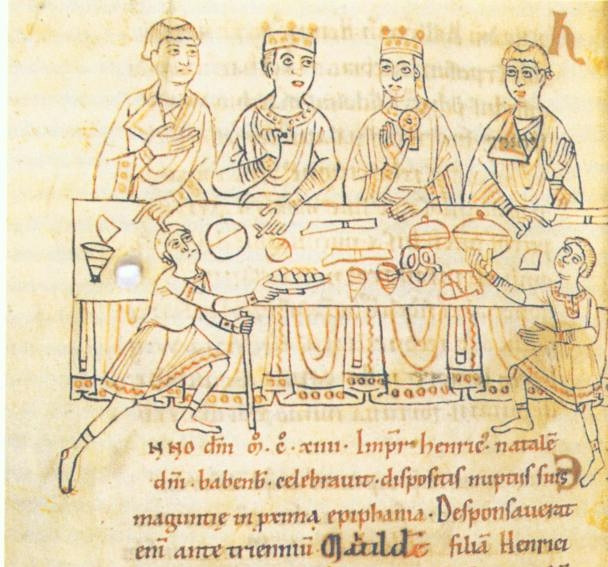 h
NNO dm̄ ꝏ. c̄. xiiii. Imp̄r henric᷒ natalē
dm̄. babenb̄. celebravit. dispositis nuptiis suis
maguntię in prima epiphania. Desponsaverat
enī ante trienniū Matildē filiā Henrici